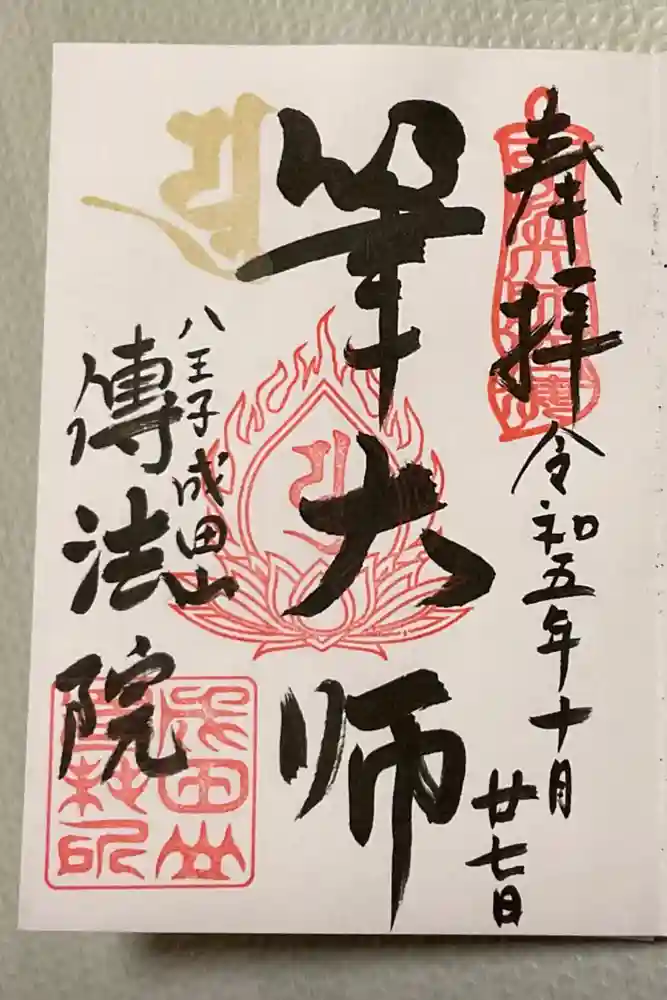 奉拝
令和五年十月
廿七日
筆大師
八王子成田山
傳法院